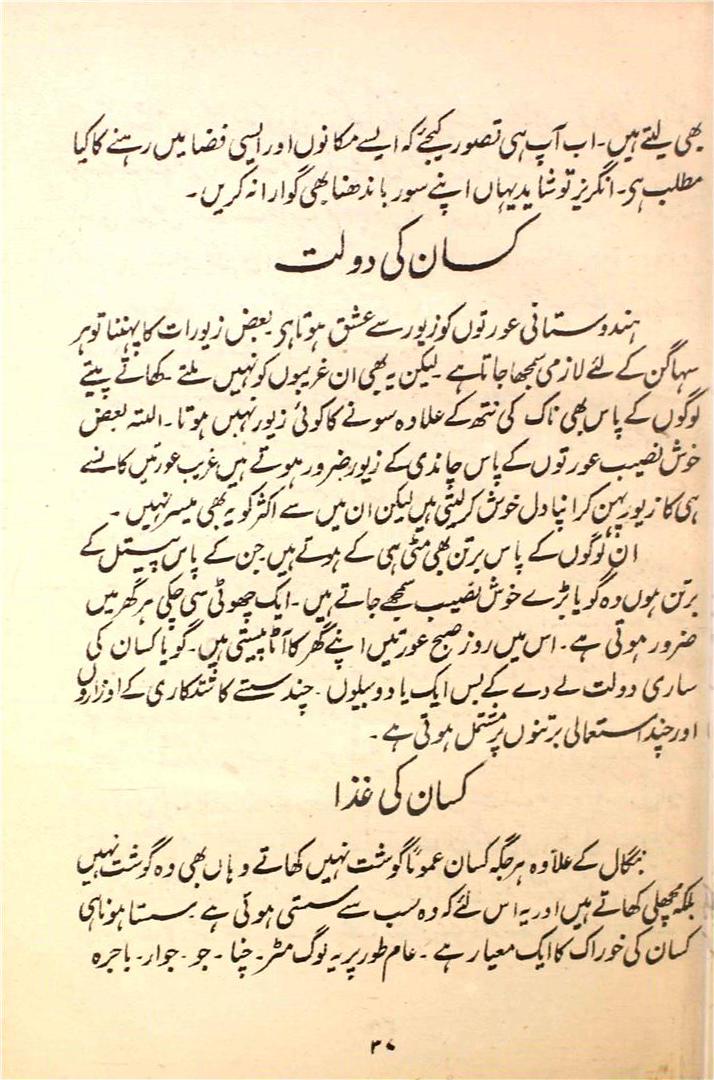 بھی لیتے ہیں۔ اب آپ ہی تصور کیجئے کہ ایسے مکانوں اور ایسی فضا میں رہنے کا کیا
مطلب ہی۔ انگریز تو شاید یہاں اپنے سور باندھنا بھی گوارا نہ کریں۔
کسان کی دولت
ہندوستانی عورتوں کو زیور سے عشق ہوتا ہی بعض زیورات کا پہننا تو ہر
سہاگن کے لئے لازمی سمجھا جاتا ہے۔ لیکن یہ بھی ان غریبوں کو نہیں ملتے۔ کھاتے پیتے
لوگوں کے پاس بھی ناک کی نتھ کے علاوہ سونے کا کوئی زیور نہیں ہوتا۔ البتہ بعض
خوش نصیب عورتوں کے پاس چاندی کے زیور ضرور ہوتے ہیں غریب عورتیں کانسے
ہی کا زیور پہن کر اپنا دل خوش کر لیتی ہیں لیکن ان میں سے اکثر کو یہ بھی میسر نہیں۔
ان لوگوں کے پاس برتن بھی مٹی ہی کے ہوتے ہیں۔ جن کے پاس پیتل کے
برتن ہوں وہ گویا بڑے خوش نصیب سمجھے جاتے ہیں۔ ایک چھوٹی سی چکی ہر گھر میں
ضرور ہوتی ہے۔ اس میں روز صبح عورتیں اپنے گھر کا آٹا پیستی ہیں۔ گویا کسان کی
ساری دولت لے دے کے بس ایک یا دو بیلوں۔ چند سستے کاشتکاری کے اوزاروں
اور چند استعمالی برتنوں پر مشتمل ہوتی ہے۔
کسان کی غذا
بنگال کے علاوہ ہر جگہ کسان عموماً گوشت نہیں کھاتے وہاں بھی وہ گوشت نہیں
بلکہ مچھلی کھاتے ہیں اور یہ اس لئے کہ وہ سب سے سستی ہوتی ہے۔ سستا ہونا ہی
کسان کی خوراک کا ایک معیار ہے۔ عام طور پر یہ لوگ مٹر۔ چنا۔ جو۔ جوار۔ باجرہ
۳۷